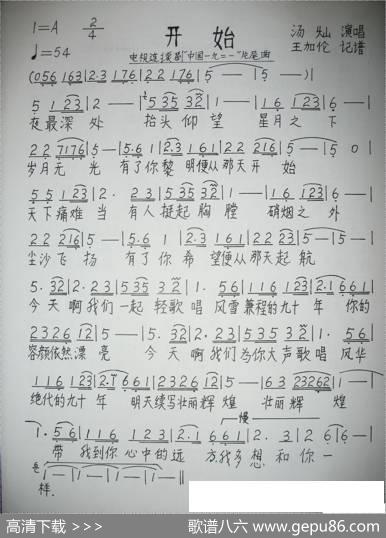 1=A 2/4 开始 汤灿 演唱
♩=54 电视连续剧"中国一九二一"片尾曲 王加伦 记谱
(056 163|2·3 176|22 176|5—|5—)|
5 1 23|2—|5 35 32|1—|1—|16 123|6—|
夜最深处 抬头仰望 星月之下
22 7176|5—|5·6 1|2·3 161|22 216|5—|5 0|
岁月无光 有了你黎明便从那天开始
55 123|2·23|535 32|1—|1—|16 123|6—|
天下痛难当 有人挺起胸膛 硝烟之外
22 216|5—|5·6 1|2·3 161|22 23|5—|5—|
尘沙飞扬 有了你希望便从那天起航
5·32|2·23|535 32|1·56|116 123|2·1 661|
今天啊我们一起轻歌唱 风雪兼程的九十年 你的
2326 12|5—|5·32|2·23|535 32|1·56|
容颜依然漂亮 今天啊我们为你大声歌唱 风华
116 123|2·1 661|2326 12|5—|563 23262|1—|
绝代的九十年 明天续写壮丽辉煌 壮丽辉煌
慢
1·56|116 123|2·1 661|2·3|26|6—|
带我到你心中的远方我多想和你一
1—|1—|1—|1—‖
样.
高清下载 >>> 歌谱八六 www.gepu86.com